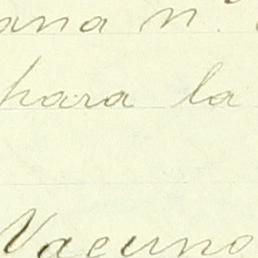 ana n.
para la
Vacuno